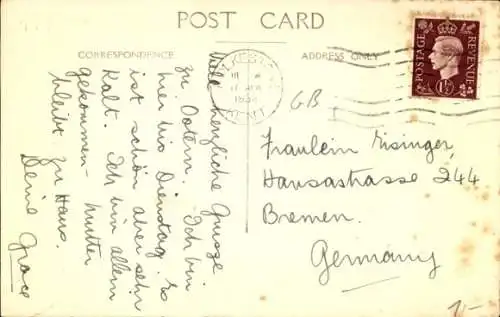 POST CARD
CORRESPONDENCE
ADDRESS ONLY
POSTAGE
REVENUE
1½
GB
Viele herzliche Grüsse
zu Ostern. Ich bin
hier bis Dienstag. Es
ist schön aber sehr
kalt. Ich bin allein
gekommen - Mutter
bleibt zu Haus.
Deine Grace
Fraulein Eisinger,
Hansastrasse 244
Bremen.
Germany